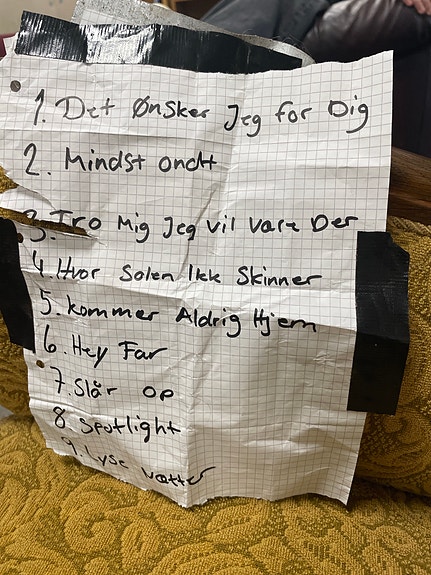 1. Det Ønsker Jeg for Dig
2. Mindst ondt
3. Tro Mig Jeg vil Være Der
4. Hvor Solen Ikk Skinner
5. Kommer Aldrig Hjem
6. Hey Far
7. Slår op
8. Spotlight
9. Lyse nætter